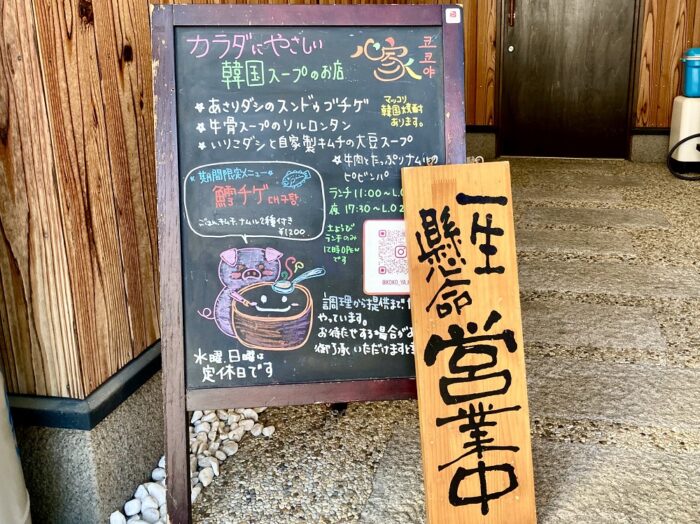 カラダにやさしい
韓国スープのお店
心家
코코야
★あさりダシのスンドゥブチゲ
★牛骨スープのソルロンタン
★いりこダシと自家製キムチの大豆スープ
★牛肉とたっぷりナムルの
ビビンバ
マッコリ
韓国焼酎
あります。
期間限定メニュー
鱈チゲ 대구탕
ごはん、キムチ、ナムル2種付き
¥1200
ランチ 11:00~L.O
夜 17:30~L.O 2
土ようび
ランチのみ
12時OPEN
です
調理から提供まで
やっています。
お待たせする場合が
御了承いただけますと
水曜、日曜は
定休日です
一生
懸命
営業中